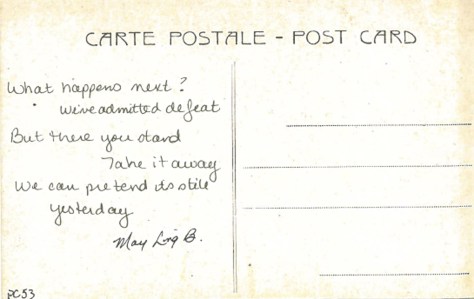 CARTE POSTALE - POST CARD
What happens next?
We've admitted defeat
But there you stand
Take it away
We can pretend its still
yesterday
May Ling B.
PC53